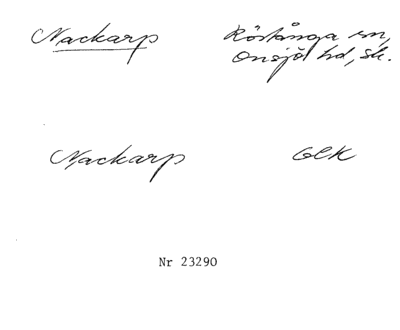 Nackarp Röstånga sn,
Onsjö hd, Sk.
Nackarp GEK
Nr 23290